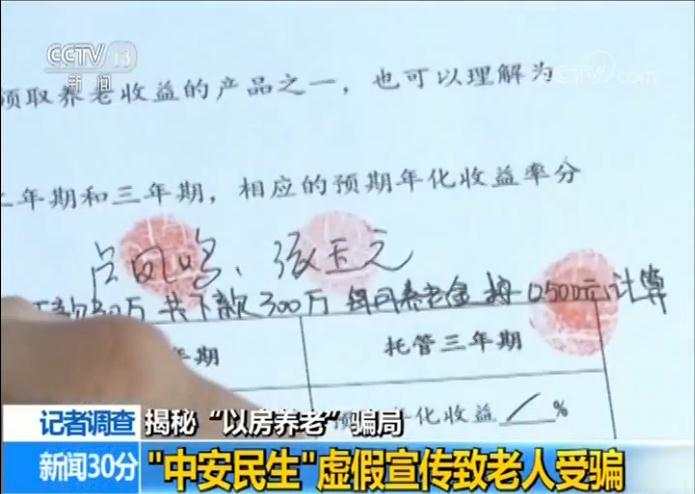 CCTV 13
新闻
CCTV.com
领取养老收益的产品之一，也可以理解为
二年期和三年期，相应的预期年化收益率分
张玉元
万 共下款300万 每月养老金按10500元计算
年期
托管三年期
年化收益 / %
记者调查
揭秘“以房养老”骗局
新闻30分
"中安民生"虚假宣传致老人受骗